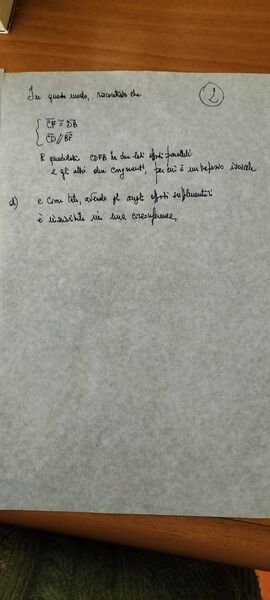 In questo modo, riscontriamo che
2
{ CF ≅ DB
CD // BF
Il quadrilatero CDFB ha due lati opposti paralleli
e gli altri due congruenti, per cui è un trapezio isoscele
d) e come tale, avendo gli angoli opposti suplementari
è inscrivibile in una circonferenza,